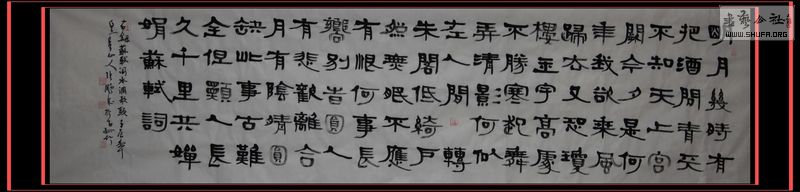 明月幾時有
把酒問青天
不知天上宮
闕今夕是何
年我欲乘風
歸去又恐瓊
樓玉宇高處
不勝寒起舞
弄清影何似
在人間轉
朱閣低綺戶
照無眠不應
有恨何事長
嚮別時圓人
有悲歡離合
月有陰晴圓
缺此事古難
全但願人長
久千里共嬋
娟蘇軾詞
WWW.SHUFA.ORG